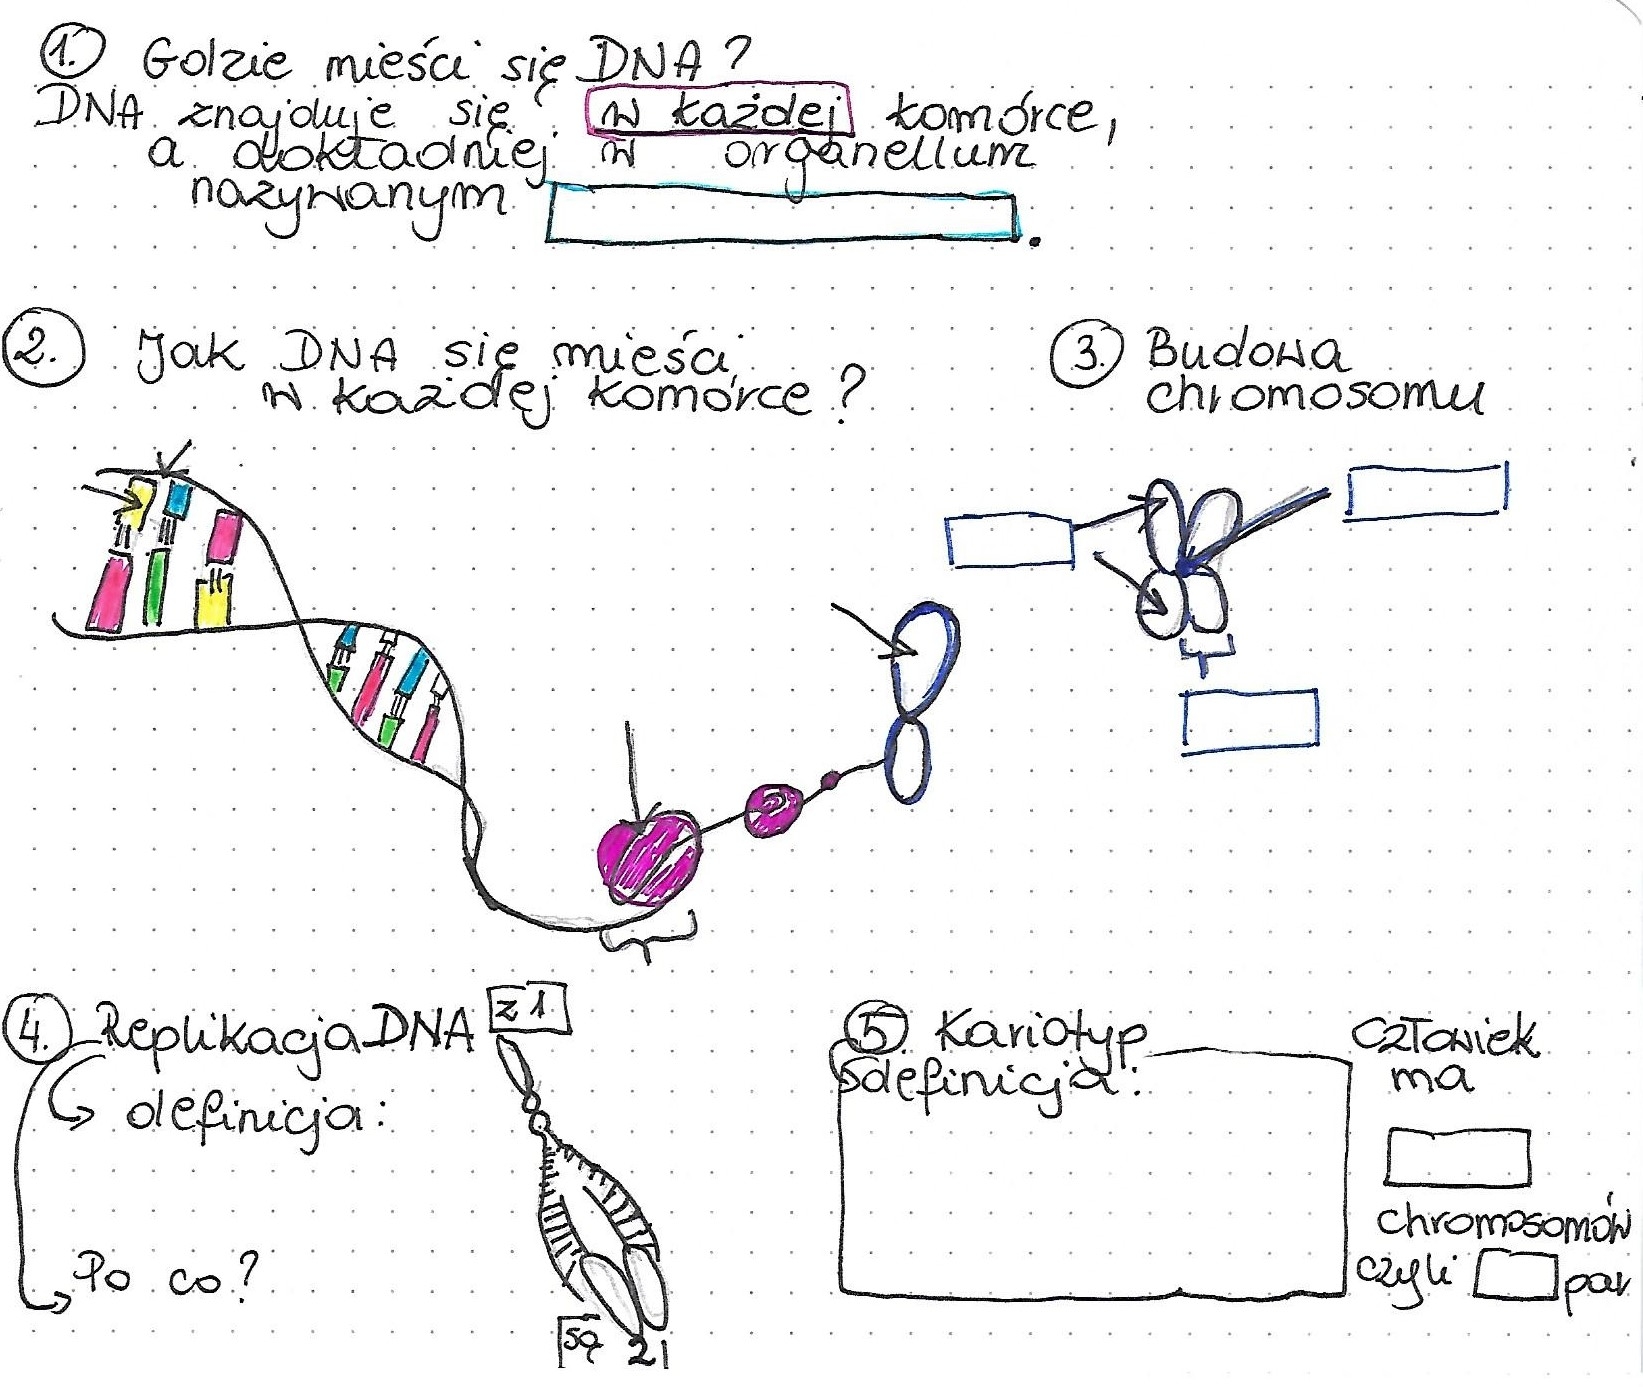 1. Gdzie mieści się DNA?
DNA znajduje się w każdej komórce,
a dokładniej w organellum
nazywanym .
2. Jak DNA się mieści
w każdej komórce?
3. Budowa
chromosomu
4. Replikacja DNA z 1
definicja:
Po co?
są 2
5. Kariotyp
definicja:
człowiek
ma
chromosomów
czyli par